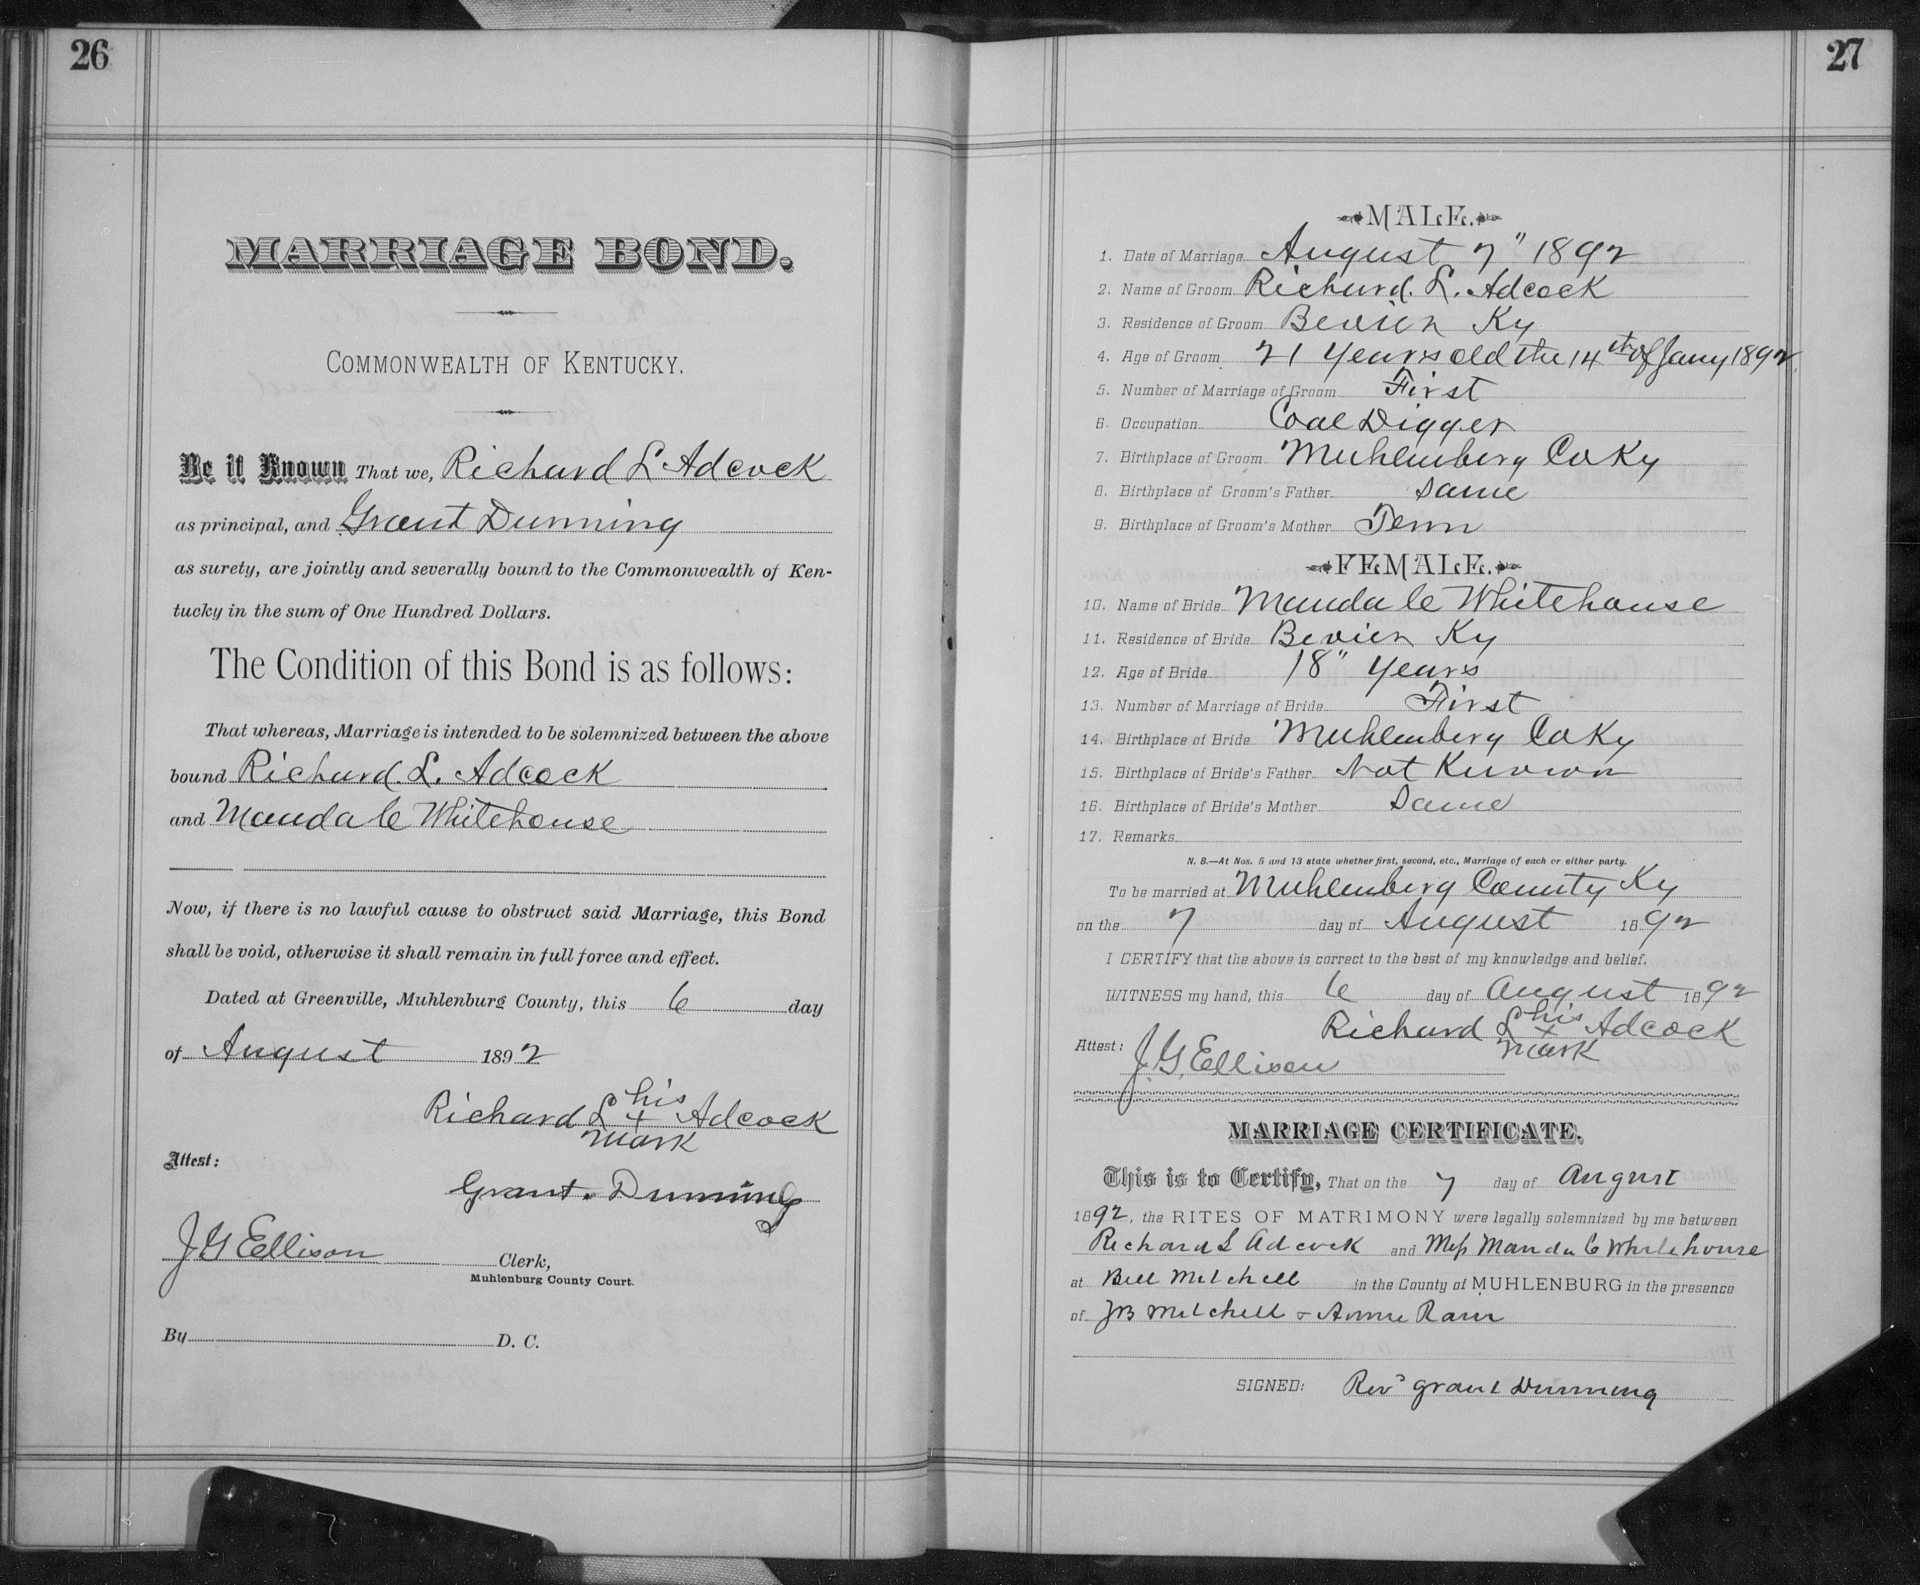 26
MARRIAGE BOND.
COMMONWEALTH OF KENTUCKY.
Be it Known That we, Richard L Adcock
as principal, and Grant Dunning
as surety, are jointly and severally bound to the Commonwealth of Ken-
tucky in the sum of One Hundred Dollars.
The Condition of this Bond is as follows:
That whereas, Marriage is intended to be solemnized between the above
bound Richard. L. Adcock
and Manda C Whitehouse
Now, if there is no lawful cause to obstruct said Marriage, this Bond
shall be void, otherwise it shall remain in full force and effect.
Dated at Greenville, Muhlenburg County, this 6 day
of August 1892
his
Richard L + Adcock
mark
Attest:
Grant. Dunning
J G Ellison Clerk,
Muhlenburg County Court.
By D. C.
27
MALE.
1. Date of Marriage August 7" 1892
2. Name of Groom Richard. L. Adcock
3. Residence of Groom Bevier Ky
4. Age of Groom 21 Years old the 14th of Jany 1892
5. Number of Marriage of Groom First
6. Occupation Coal Digger
7. Birthplace of Groom Muhlenberg Co Ky
8. Birthplace of Groom's Father Same
9. Birthplace of Groom's Mother Tenn
FEMALE.
10. Name of Bride Manda C Whitehouse
11. Residence of Bride Bevier Ky
12. Age of Bride 18" Years
13. Number of Marriage of Bride First
14. Birthplace of Bride Muhlenberg Co Ky
15. Birthplace of Bride's Father Not Known
16. Birthplace of Bride's Mother Same
17. Remarks
N. B.—At Nos. 5 and 13 state whether first, second, etc., Marriage of each or either party.
To be married at Muhlenberg County Ky
on the 7 day of August 1892
I CERTIFY that the above is correct to the best of my knowledge and belief.
WITNESS my hand, this 6 day of August 1892
his
Richard L + Adcock
mark
Attest: J. G. Ellison
MARRIAGE CERTIFICATE.
This is to Certify, That on the 7 day of August
1892, the RITES OF MATRIMONY were legally solemnized by me between
Richard L Adcock and Miss Manda C Whitehouse
at Bill Mitchell in the County of MUHLENBURG in the presence
of JB Mitchell + Annie
SIGNED: Rev Grant Dunning